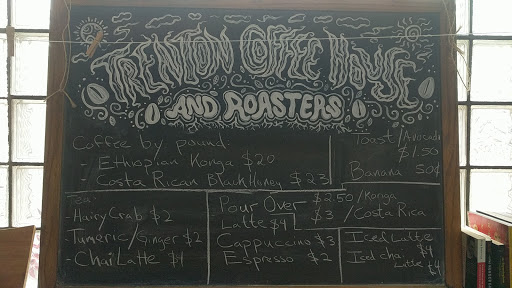 TRENTON COFFEE HOUSE
AND ROASTERS
Coffee by pound
- Ethiopian Konga $20
- Costa Rican Black Honey $23
Toast/Avocado
$1.50
Banana 50¢
Tea-
- Hairy Crab $2
- Tumeric/Ginger $2
- Chai Latte $4
Pour Over $2.50/Konga
$3/Costa Rica
Latte $4
Cappuccino $3
Espresso $2
Iced Latte $4
Iced chai
Latte $4